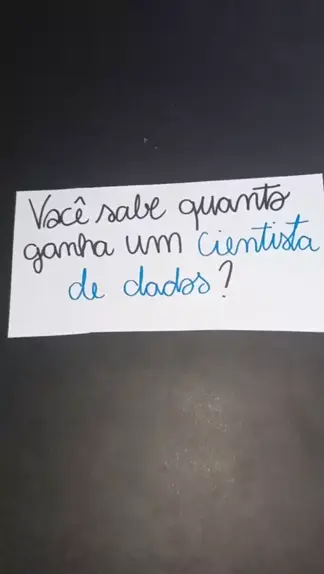 Você sabe quanto
ganha um cientista
de dados?